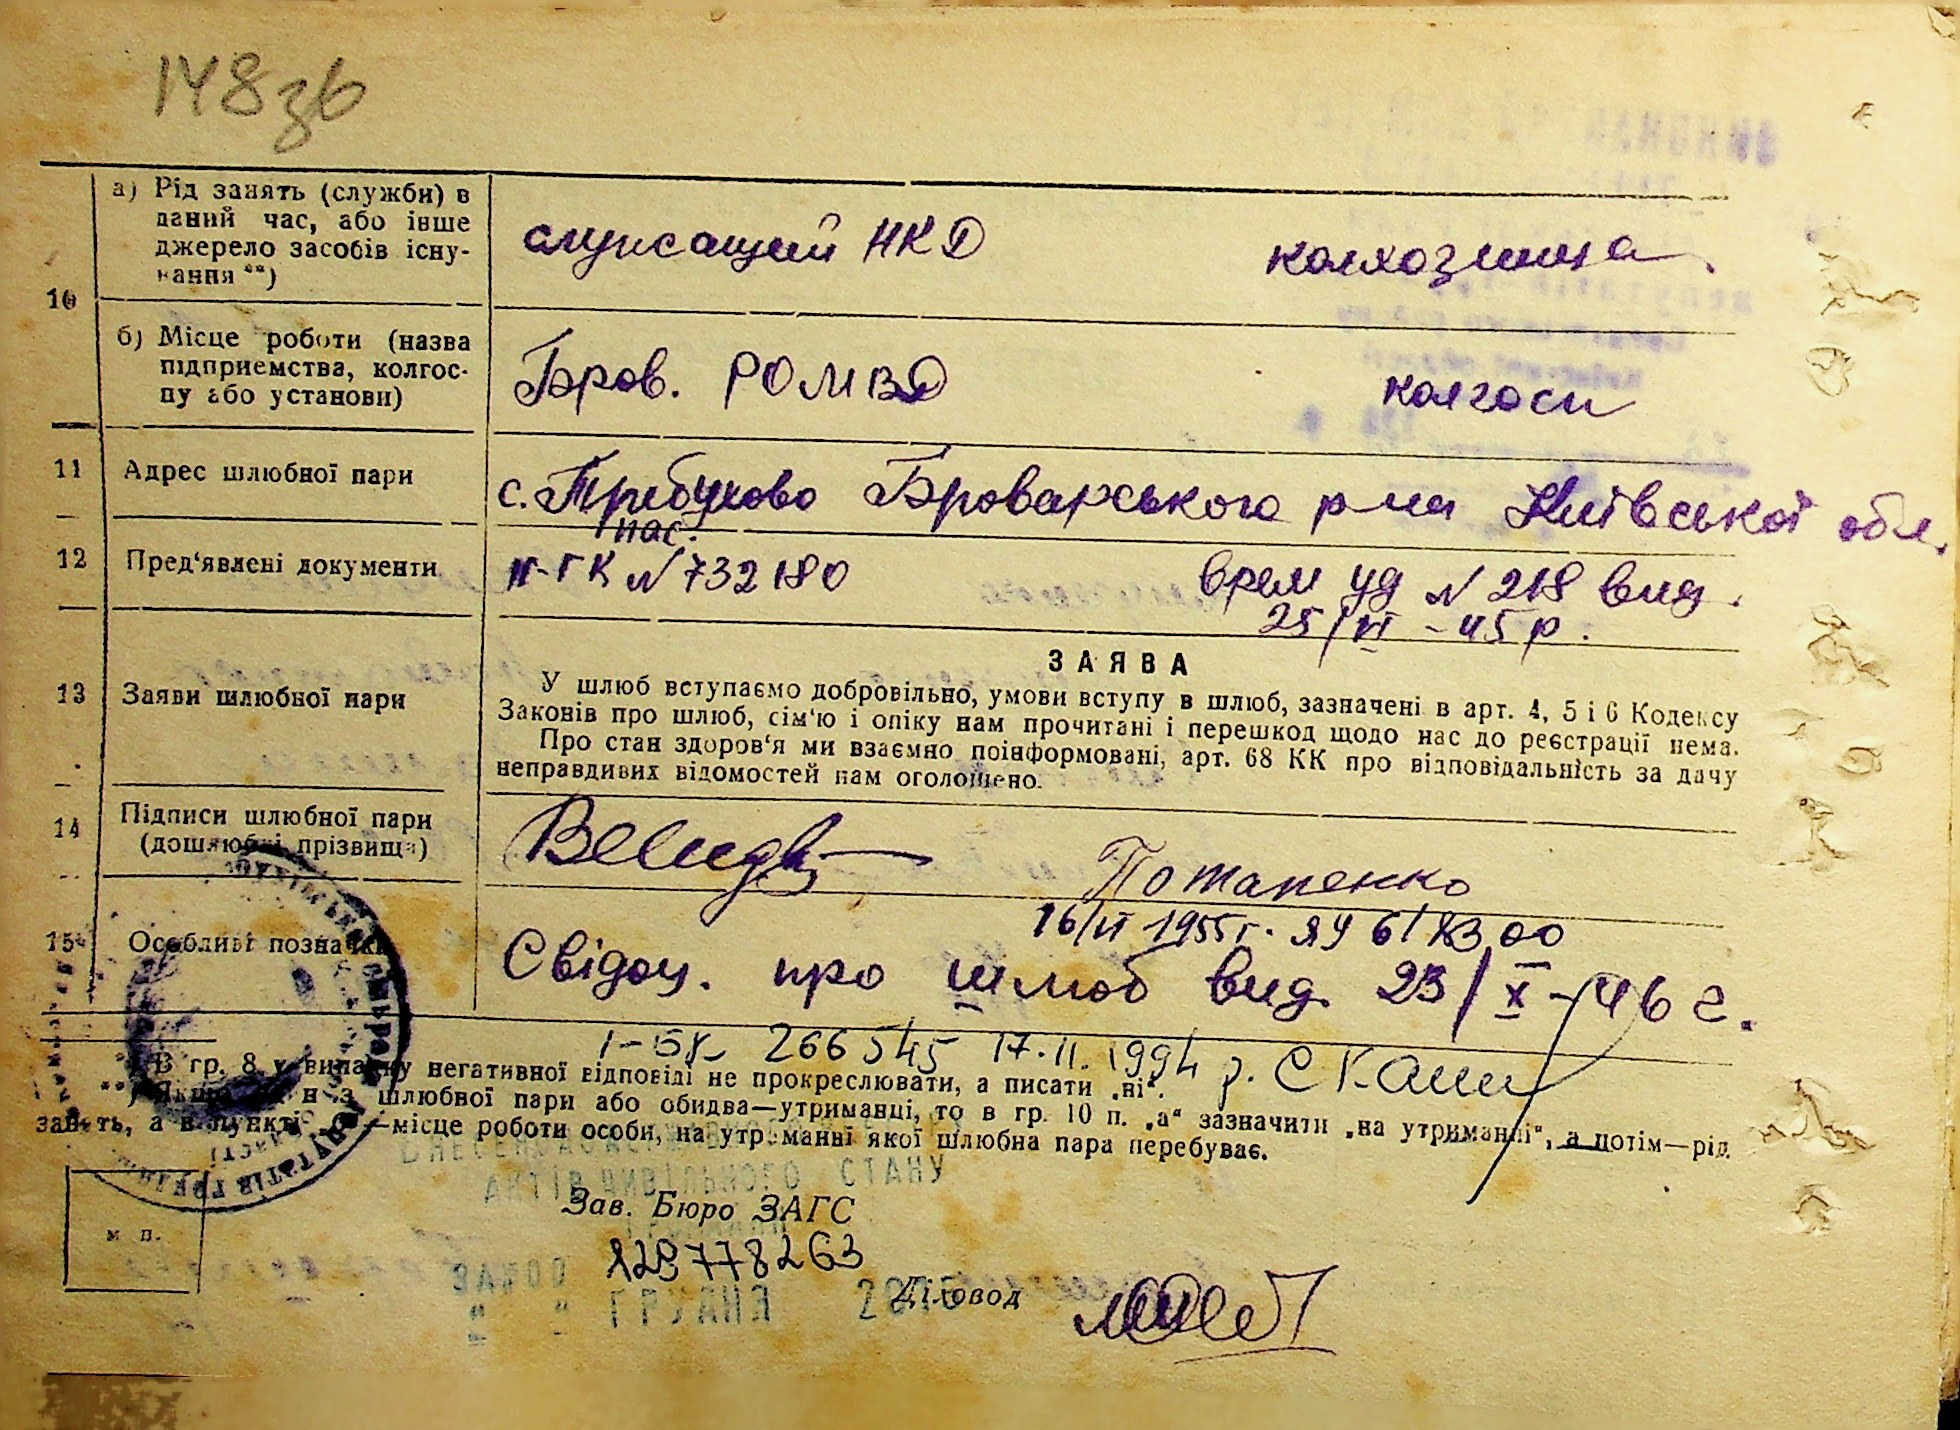 148зв
10
а) Рід занять (служби) в
даний час, або інше
джерело засобів існу-
вання **)
служащий НКД
колхозница.
б) Місце роботи (назва
підприємства, колгос-
пу або установи)
Бров. РОМВД
колгосп
11 Адрес шлюбної пари
с. Требухово Броварського р-на Київської обл.
12 Пред'явлені документи
пас.
II-ГК N 732180
врем уд N 218 вид.
25/VI -45 р.
13 Заяви шлюбної пари
ЗАЯВА
У шлюб вступаємо добровільно, умови вступу в шлюб, зазначені в арт. 4, 5 і 6 Кодексу
Законів про шлюб, сім'ю і опіку нам прочитані і перешкод щодо нас до реєстрації нема.
Про стан здоров'я ми взаємно поінформовані, арт. 68 КК про відповідальність за дачу
неправдивих відомостей нам оголошено.
14 Підписи шлюбної пари
(дошлюбні прізвища)
Потапенко
15 Особливі позначки
16/VI 1955 г. ЯУ 618300
Свідоц. про шлюб вид. 23/X -46 г.
I-БК 266545 17.11.1994 р.
*) В гр. 8 у випадку негативної відповіді не прокреслювати, а писати „ні“.
**) Якщо один з шлюбної пари або обидва—утриманці, то в гр. 10 п. „а“ зазначити „на утриманні“, а потім—рід
занять, а в пункті —місце роботи особи, на утриманні якої шлюбна пара перебуває.
АКТІВ ЦИВІЛЬНОГО СТАНУ
Зав. Бюро ЗАГС
м. п.
829778263
ГРУДНЯ
Діловод